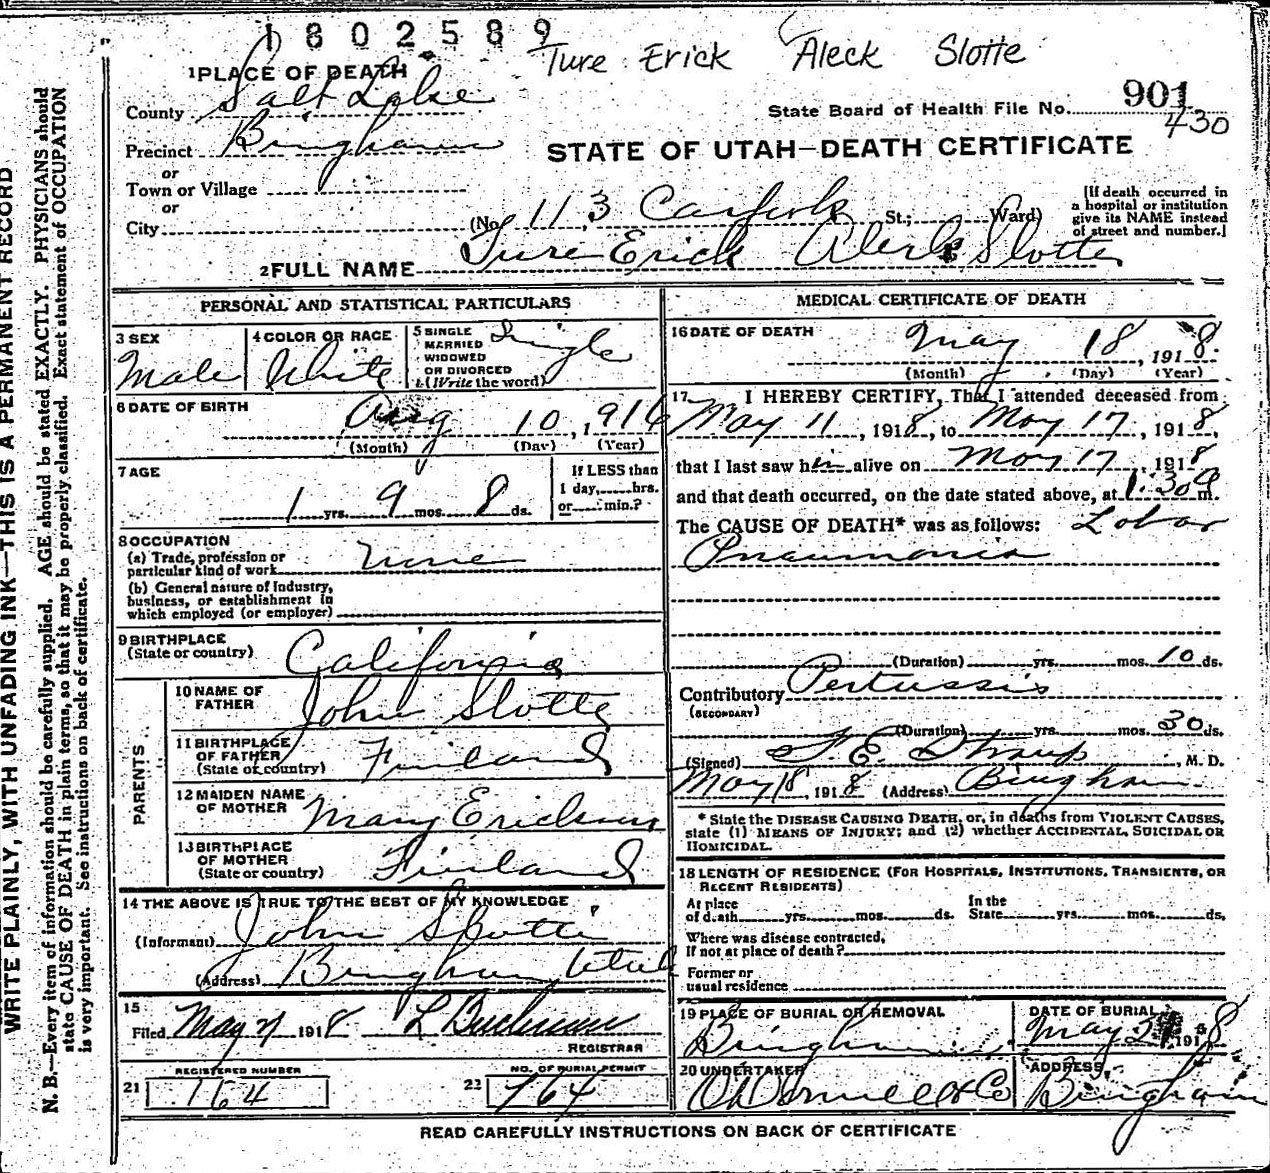 1802589
Ture Erick Aleck Slotte
1 PLACE OF DEATH
County Salt Lake
State Board of Health File No. 901
430
Precinct Bingham
STATE OF UTAH—DEATH CERTIFICATE
or
Town or Village
or
City
(No. 113 Carfork St.; Ward)
[If death occurred in a hospital or institution give its NAME instead of street and number.]
2 FULL NAME Ture Erick Aleck Slotte
PERSONAL AND STATISTICAL PARTICULARS
3 SEX
Male
4 COLOR OR RACE
White
5 SINGLE MARRIED WIDOWED OR DIVORCED (Write the word)
Single
6 DATE OF BIRTH
Aug 10, 1916
(Month) (Day) (Year)
7 AGE
1 yrs. 9 mos. 8 ds.
If LESS than 1 day, hrs. or min.?
8 OCCUPATION
(a) Trade, profession or particular kind of work none
(b) General nature of industry, business, or establishment in which employed (or employer)
9 BIRTHPLACE
(State or country) California
PARENTS
10 NAME OF FATHER John Slotte
11 BIRTHPLACE OF FATHER (State or country) Finland
12 MAIDEN NAME OF MOTHER Mary Erickson
13 BIRTHPLACE OF MOTHER (State or country) Finland
14 THE ABOVE IS TRUE TO THE BEST OF MY KNOWLEDGE
(Informant) John Slotte
(Address) Bingham Utah
15
Filed May 21 1918 L Buchman
REGISTRAR
REGISTERED NUMBER
21 164
NO. OF BURIAL PERMIT
22 764
MEDICAL CERTIFICATE OF DEATH
16 DATE OF DEATH
May 18, 1918
(Month) (Day) (Year)
17 I HEREBY CERTIFY, That I attended deceased from
May 11, 1918, to May 17, 1918,
that I last saw him alive on May 17, 1918
and that death occurred, on the date stated above, at 1:30 a m.
The CAUSE OF DEATH* was as follows: Lobar
Pneumonia
(Duration) yrs. mos. 10 ds.
Contributory Pertussis
(SECONDARY)
(Duration) yrs. mos. 30 ds.
(Signed) F. E. Straup, M. D.
May 18, 1918 (Address) Bingham
* State the DISEASE CAUSING DEATH, or, in deaths from VIOLENT CAUSES, state (1) MEANS OF INJURY; and (2) whether ACCIDENTAL, SUICIDAL OR HOMICIDAL.
18 LENGTH OF RESIDENCE (FOR HOSPITALS, INSTITUTIONS, TRANSIENTS, OR RECENT RESIDENTS)
At place of death yrs. mos. ds. In the State yrs. mos. ds.
Where was disease contracted, if not at place of death?
Former or usual residence
19 PLACE OF BURIAL OR REMOVAL
Bingham
DATE OF BURIAL
May 21 1918
20 UNDERTAKER
O'Donnell & Co
ADDRESS
Bingham
READ CAREFULLY INSTRUCTIONS ON BACK OF CERTIFICATE
WRITE PLAINLY, WITH UNFADING INK—THIS IS A PERMANENT RECORD
N. B.—Every item of information should be carefully supplied. AGE should be stated EXACTLY. PHYSICIANS should
state CAUSE OF DEATH in plain terms, so that it may be properly classified. Exact statement of OCCUPATION
is very important. See instructions on back of certificate.